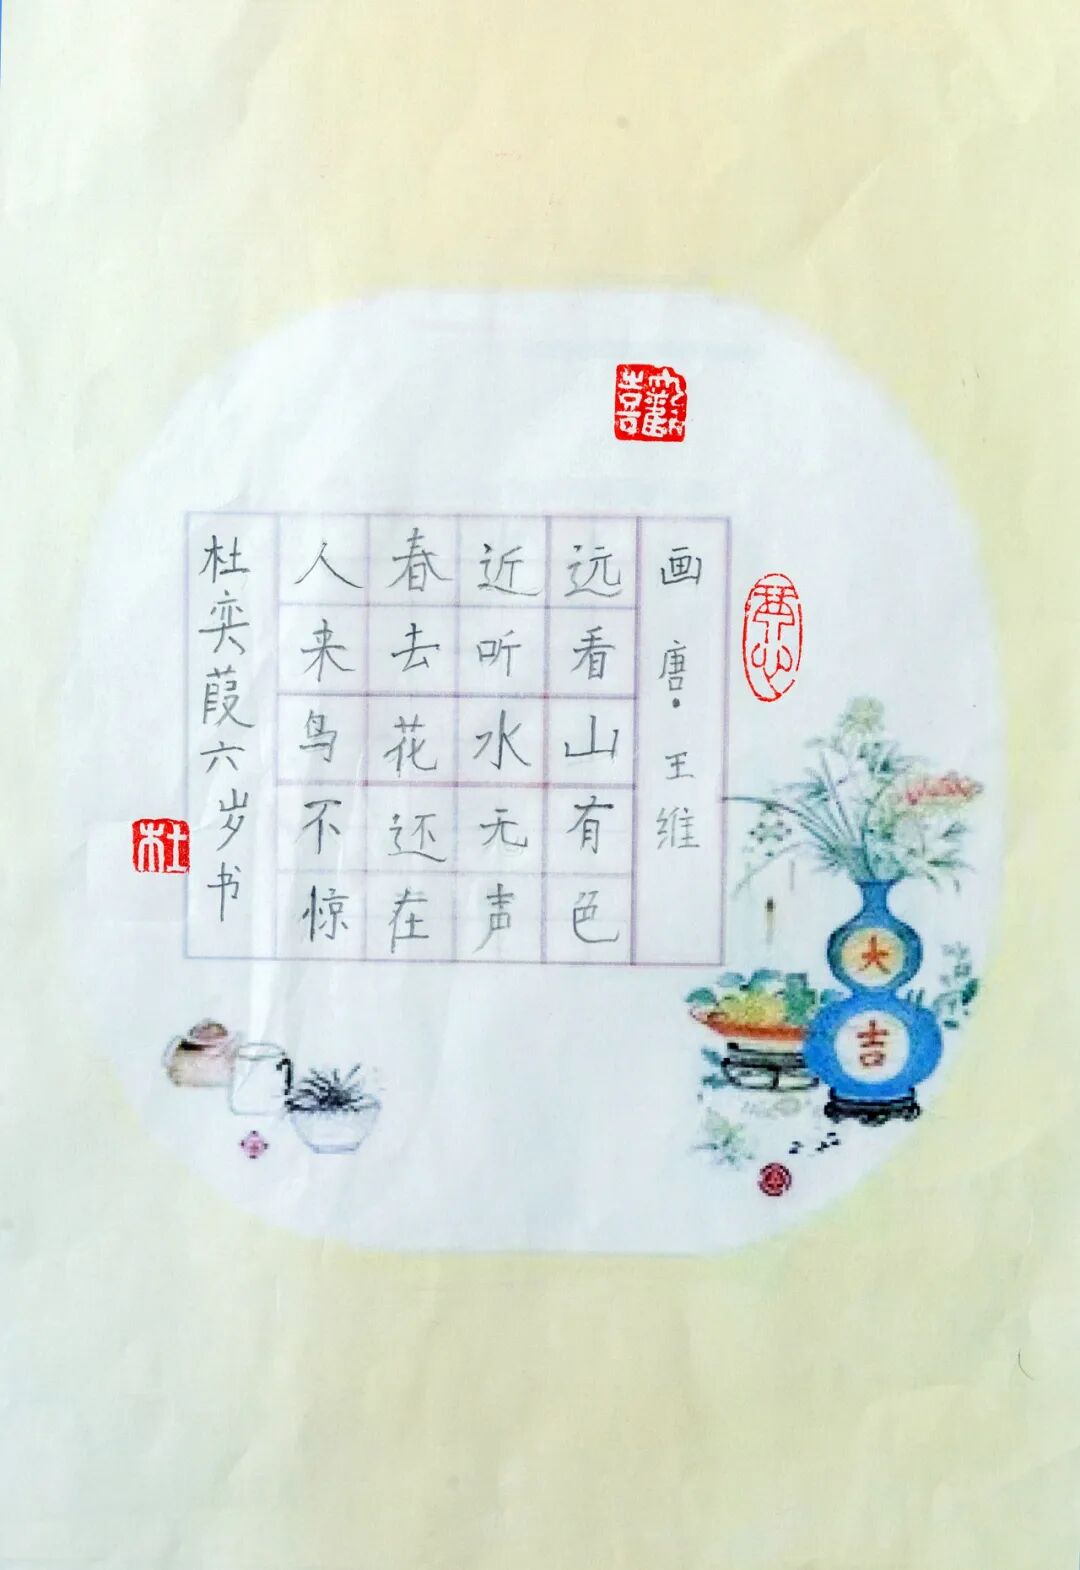 画 唐·王维
远看山有色
近听水无声
春去花还在
人来鸟不惊
杜奕葭六岁书
杜
大吉